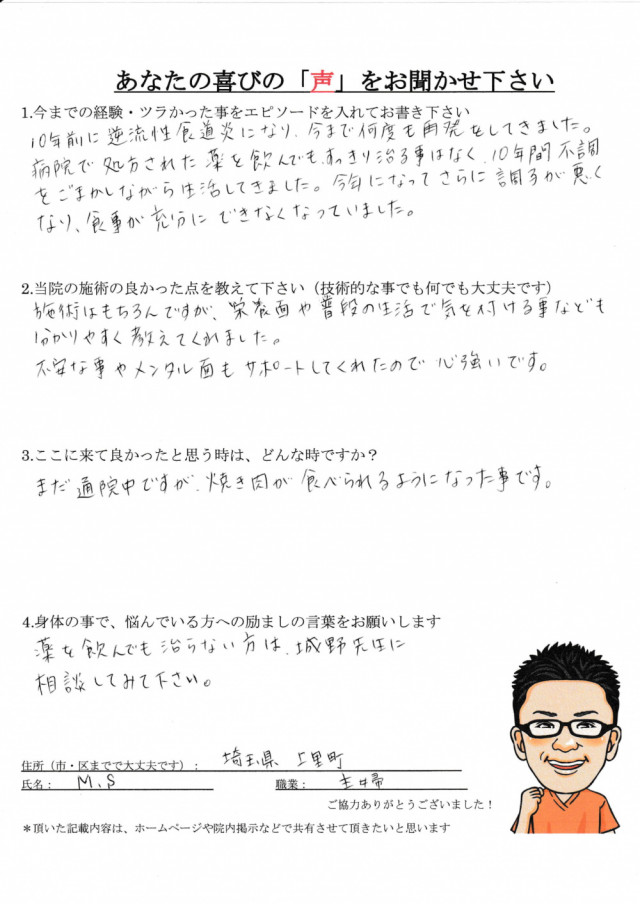 あなたの喜びの「声」をお聞かせ下さい
1.今までの経験・ツラかった事をエピソードを入れてお書き下さい
10年前に逆流性食道炎になり、今まで何度も再発をしてきました。
病院で処方された薬を飲んでもすっきり治る事はなく、10年間不調
をごまかしながら生活してきました。今年になってさらに調子が悪く
なり、食事が充分にできなくなっていました。
2.当院の施術の良かった点を教えて下さい（技術的な事でも何でも大丈夫です）
施術はもちろんですが、栄養面や普段の生活で気を付ける事なども
分かりやすく教えてくれました。
不安な事やメンタル面もサポートしてくれたので心強いです。
3.ここに来て良かったと思う時は、どんな時ですか？
まだ通院中ですが、焼き肉が食べられるようになった事です。
4.身体の事で、悩んでいる方への励ましの言葉をお願いします
薬を飲んでも治らない方は、城野先生に
相談してみて下さい。
住所（市・区までで大丈夫です）： 埼玉県 上里町
氏名： M.S 職業： 主婦
ご協力ありがとうございました！
＊頂いた記載内容は、ホームページや院内掲示などで共有させて頂きたいと思います